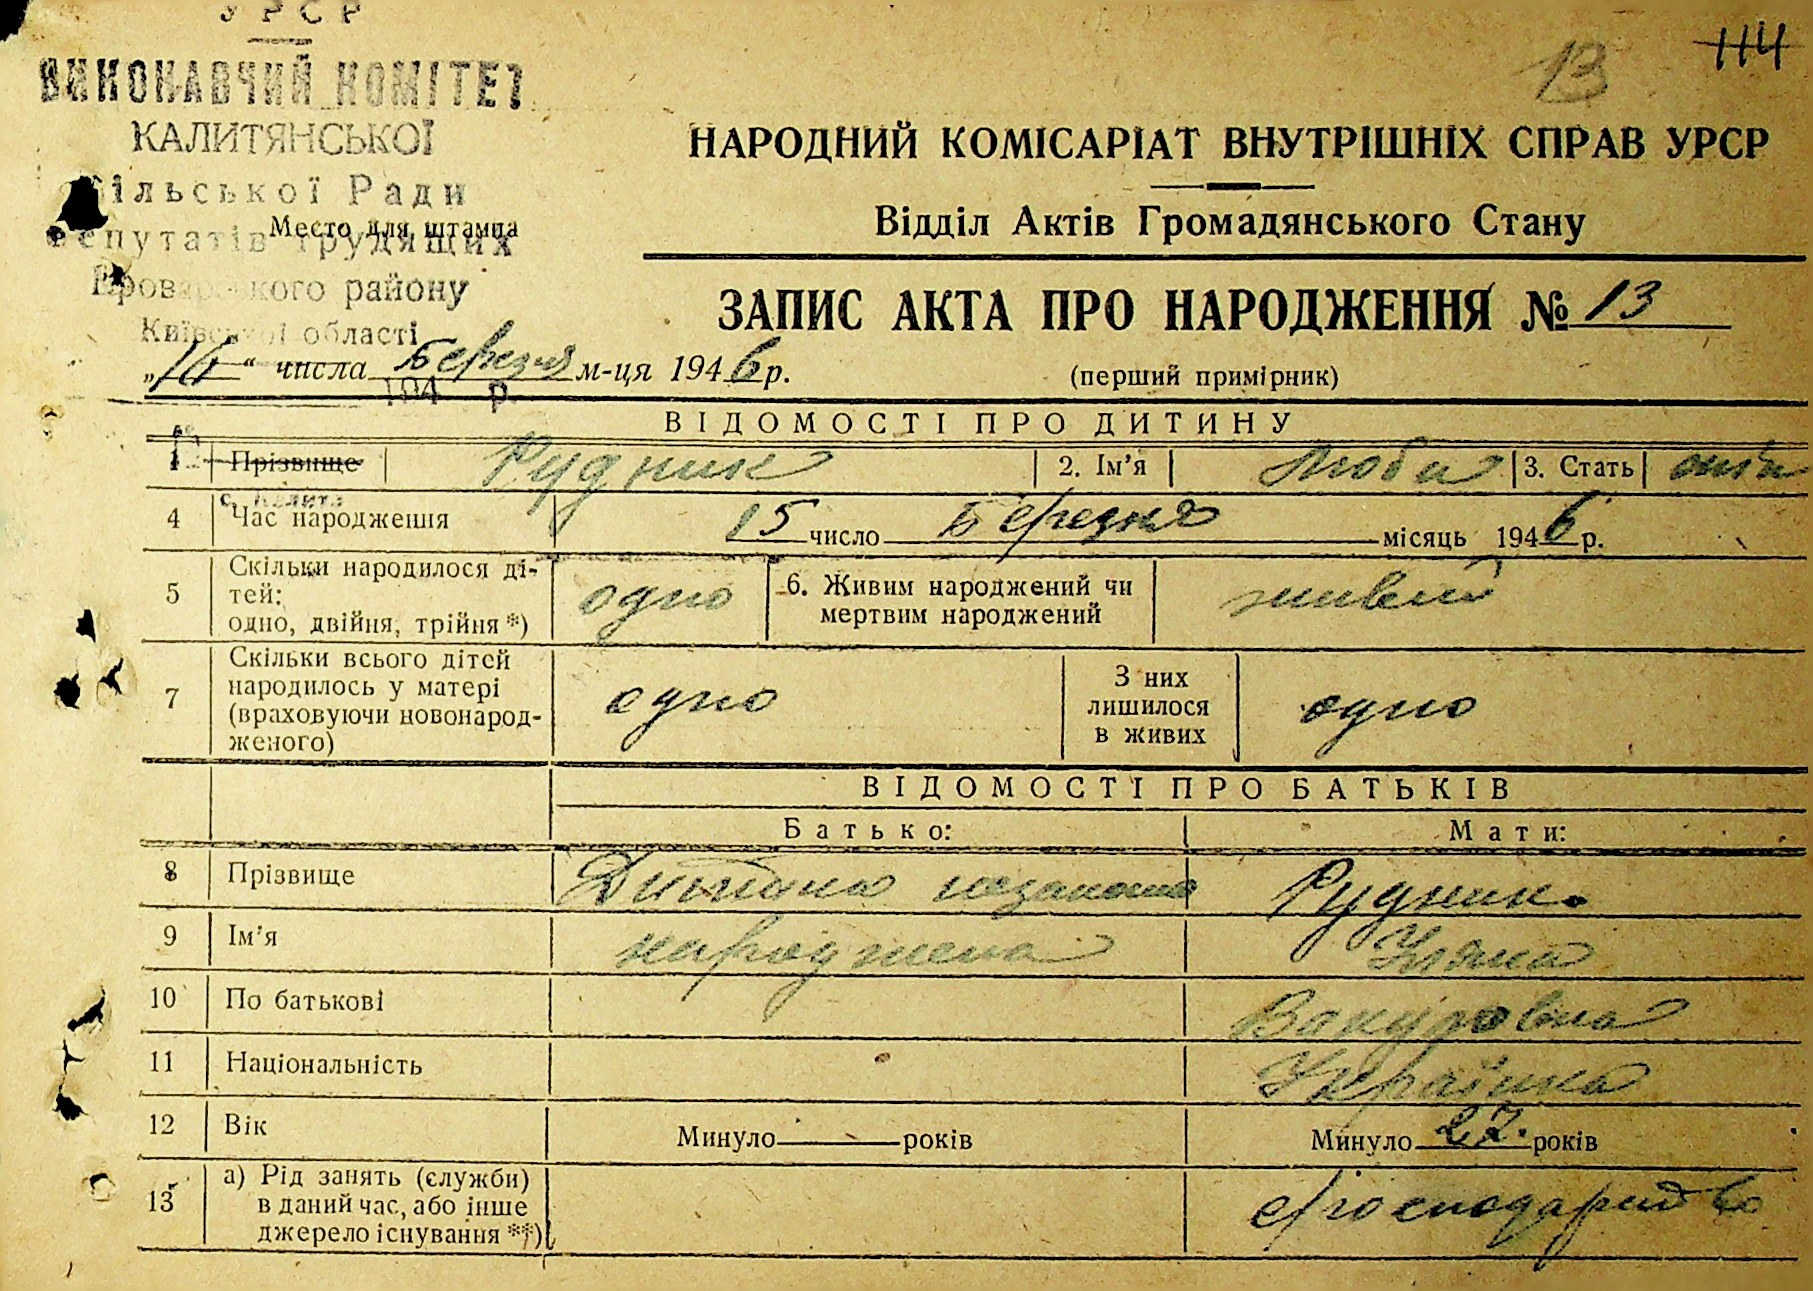 УРСР
ВИКОНАВЧИЙ КОМІТЕТ
КАЛИТЯНСЬКОЇ
сільської Ради
депутатів трудящих
Броварського району
Київської області
194 р.
Место для штампа
13
114
НАРОДНИЙ КОМІСАРІАТ ВНУТРІШНІХ СПРАВ УРСР
Відділ Актів Громадянського Стану
ЗАПИС АКТА ПРО НАРОДЖЕННЯ № 13
числа Березня м-ця 1946 р.
(перший примірник)
ВІДОМОСТІ ПРО ДИТИНУ
1 Прізвище Рудник 2. Ім'я Люба 3. Стать
с. Калита
4 Час народження 15 число Березня місяць 1946 р.
5 Скільки народилося ді-
тей:
одно, двійня, трійня *) одно 6. Живим народжений чи
мертвим народжений живий
7 Скільки всього дітей
народилось у матері
(враховуючи новонарод-
женого) одно З них
лишилося
в живих одно
ВІДОМОСТІ ПРО БАТЬКІВ
Батько: Мати:
8 Прізвище Дитина незаконо Рудник.
9 Ім'я народжена Уляна
10 По батькові Вакуровна
11 Національність Українка
12 Вік Минуло — років Минуло 27. років
13 а) Рід занять (служби)
в даний час, або інше
джерело існування **) с/господарство